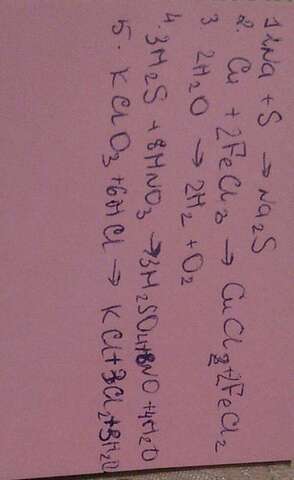 1 2Na + S → Na₂S
2. Cu + 2FeCl₃ → CuCl₂ + 2FeCl₂
3 2H₂O → 2H₂ + O₂
4. 3H₂S + 8HNO₃ → 3H₂SO₄ + 8NO + 4H₂O
5. KClO₃ + 6HCl → KCl + 3Cl₂ + 3H₂O